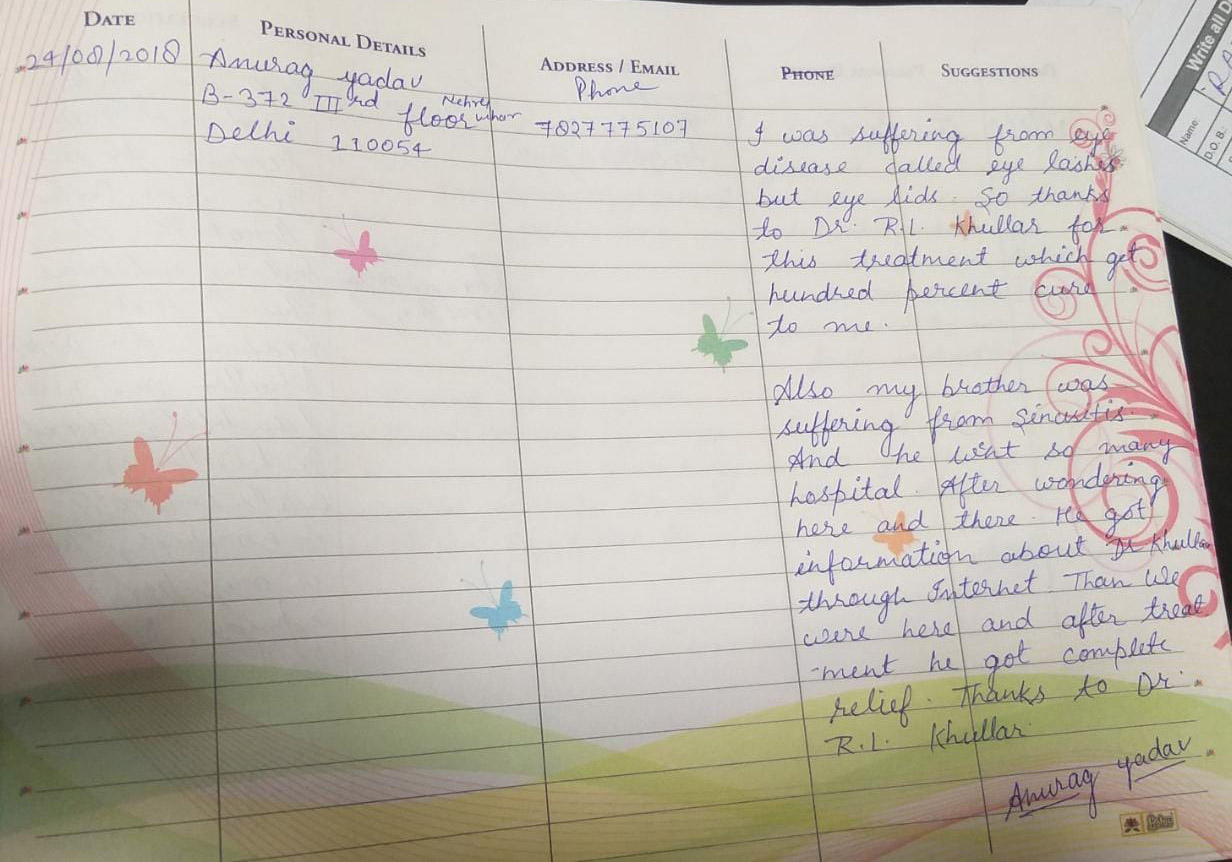 DATE
PERSONAL DETAILS
ADDRESS / EMAIL
PHONE
SUGGESTIONS
24/08/2018
Anurag yadav
B-372 IIIrd floor Nehru vihar
Delhi 110054
Phone
7827775107
I was suffering from eye
disease called eye lashes
but eye lids. So thanks
to Dr. R.L. Khullar for
this treatment which get
hundred percent cure
to me.
Also my brother was
suffering from Sinusitis.
And he went so many
hospital. After wondering
here and there. He got
information about Dr Khullar
through Internet. Than we
were here and after treat
-ment he got complete
relief. Thanks to Dr.
R.L. Khullar
Anurag yadav
Write all D
Name:
D.O.B.